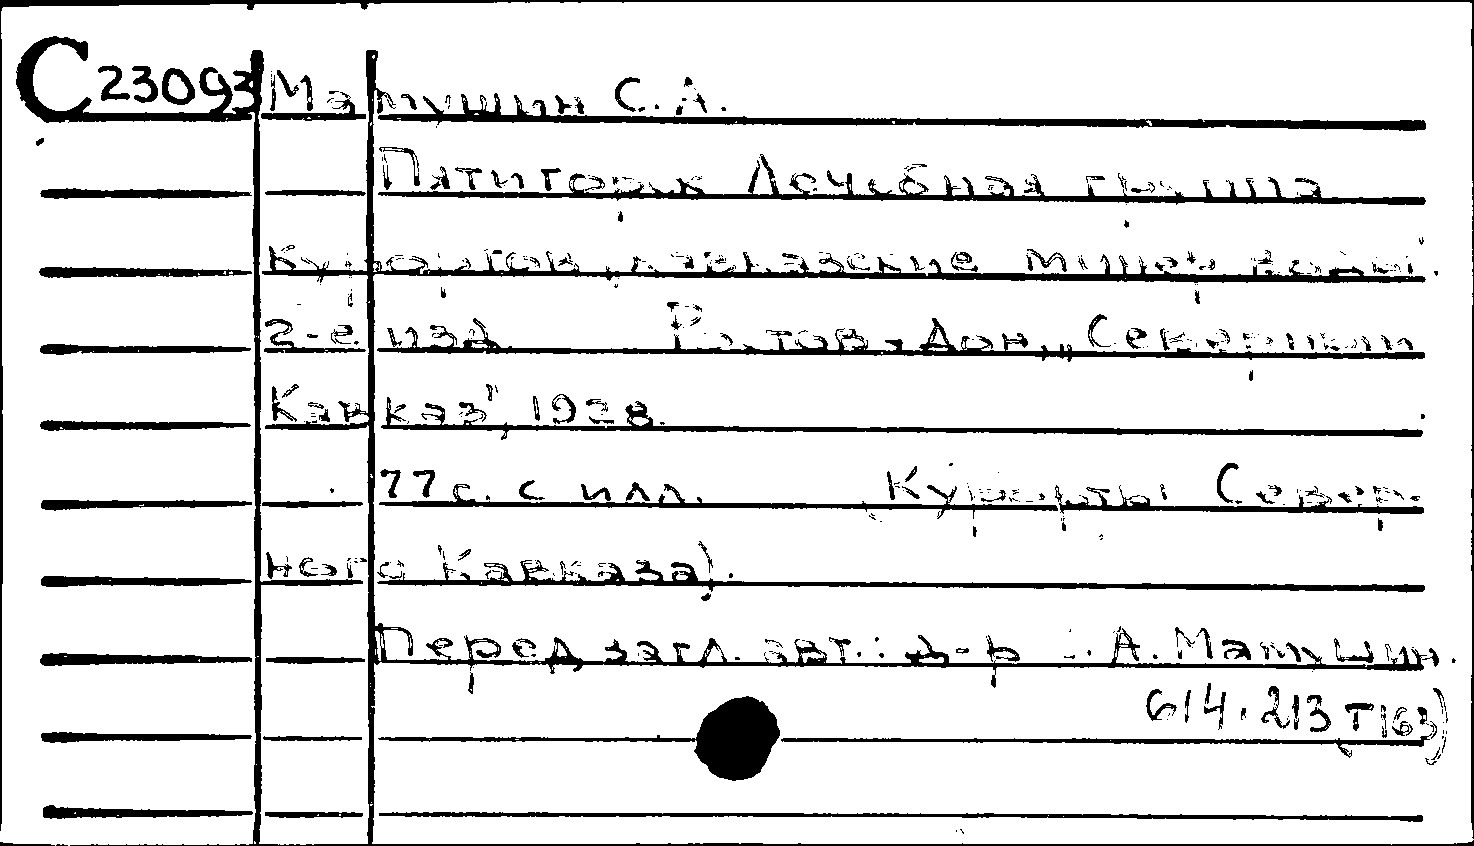 С 23093 Матушин С. А.
Пятигорск Лечебная группа
курортов, кавказские минер. воды.
2-е изд. Ростов-Дон, „Северный
Кавказ", 1928.
77 с. с илл. (Курорты Север-
ного Кавказа).
Перед загл. авт.: д-р С. А. Матушин.
614.213 (Т163)